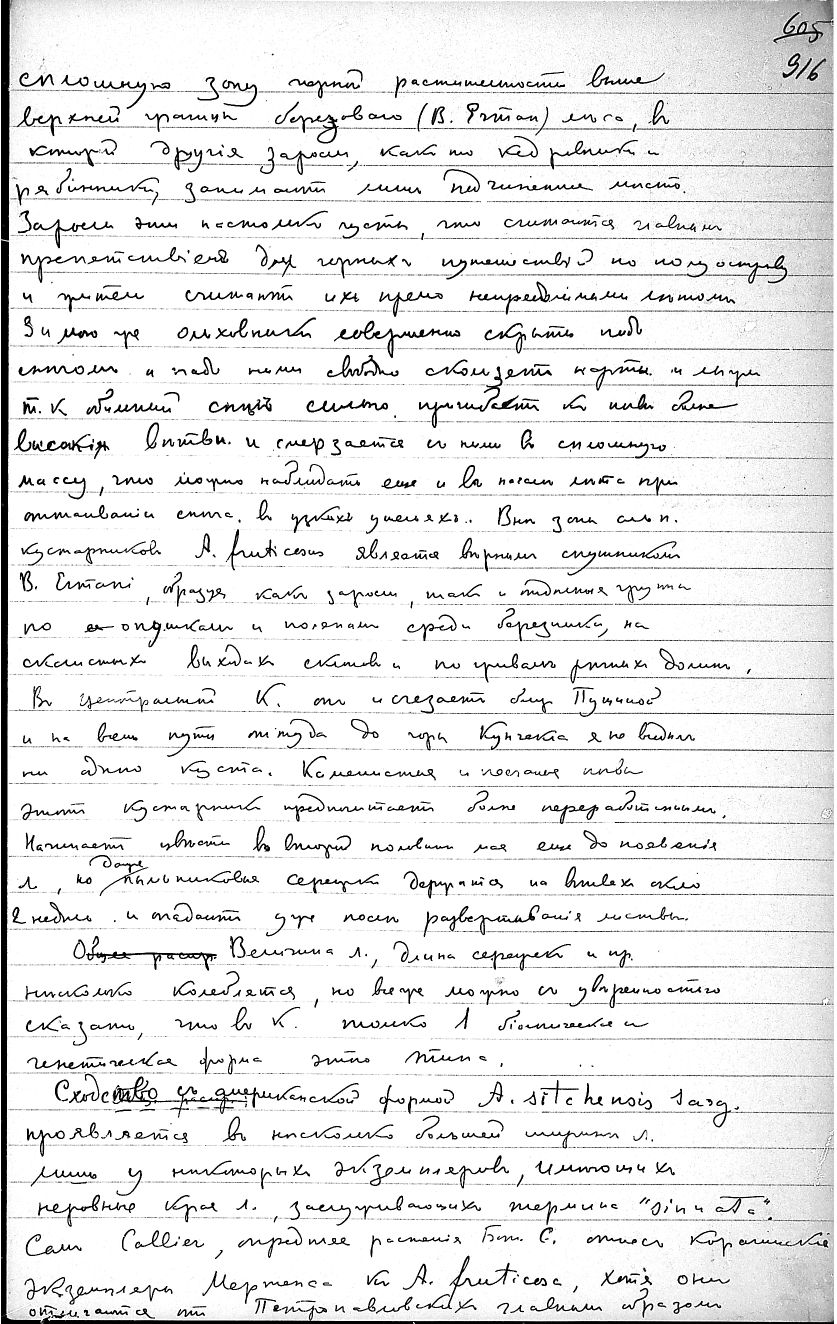 605
916
сплошную зону горной растительности выше
верхней границы березоваго (B. Erman) лѣса, въ
которой другія заросли, какъ то кедровники и
рябинники, занимаютъ лишь подчиненное мѣсто.
Заросли эти настолько густы, что считаются главнымъ
препятствіемъ для горныхъ путешествій по полуострову
и жители считаютъ ихъ прямо непроходимыми лѣтомъ
Зимою же ольховники совершенно скрыты подъ
снѣгомъ и надъ ними свободно скользятъ нарты и лыжи
т.к обильный снѣгъ сильно пригибаетъ къ почвѣ болѣе
высокія вѣтви и смерзается съ ними въ сплошную
массу, что можно наблюдать еще и въ началѣ лѣта при
оттаиваніи снѣга въ узкихъ ущельяхъ. Внѣ зоны альп.
кустарниковъ A. fruticosus является вѣрнымъ спутникомъ
B. Ermani, образуя какъ заросли, такъ и отдѣльныя группы
по опушкамъ и полянамъ среди березника, на
скалистыхъ выходахъ склоновъ и по гривамъ рѣчныхъ долинъ.
Въ центральной К. онъ исчезаетъ близъ Пущиной
и на всемъ пути оттуда до горы Кунчекла я не видѣлъ
ни одного куста. Каменистыя и песчаныя почвы
этотъ кустарникъ предпочитаетъ болѣе переработаннымъ.
Начинаетъ цвѣсти во второй половинѣ мая еще до появленія
л., но даже пыльниковыя сережки держатся на вѣтвяхъ около
2 недѣль и опадаютъ уже послѣ развертыванія листвы.
Величина л., длина сережекъ и пр.
нѣсколько колеблется, но все же можно съ увѣренностью
сказать, что въ К. только 1 біологическая и
генетическая форма этого типа.
Сходство съ американской формой A. sitchensis Sarg.
проявляется въ нѣсколько большей ширинѣ л.
лишь у нѣкоторыхъ экземпляровъ, имѣющихъ
неровные края л., заслуживающихъ термина "sinuata".
Самъ Callier, опредѣляя растенія Бот. С. отнесъ Корагинскіе
экземпляры Мертенса къ A. fruticosa, хотя они
отличаются отъ Петропавловскихъ главнымъ образомъ